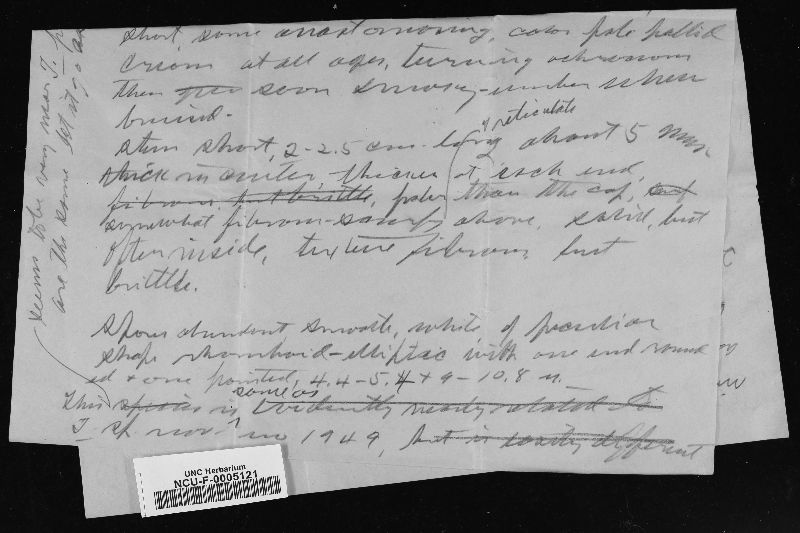 short, some anastomosing, color pale pallid
cream at all ages, turning ochraceous
then soon smoky-umber when
bruised.
stem short, 2-2.5 cm. long about 5 mm
& reticulate
thick in center - thicker at each end,
fibrous, but brittle, paler than the cap, and
somewhat fibrous-scurfy above, solid, but
softer inside, texture fibrous but
brittle.
Spores abundant smooth, white, of peculiar
shape rhomboid-elliptic with one end round
ed & one pointed, 4.4-5.4 x 9-10.8 u.
same as
This species is evidently nearly related to
T. sp. no. in 1949, but is easily different
seems to be very near T. p
are the same let it go as
UNC Herbarium
NCU-F-0005121